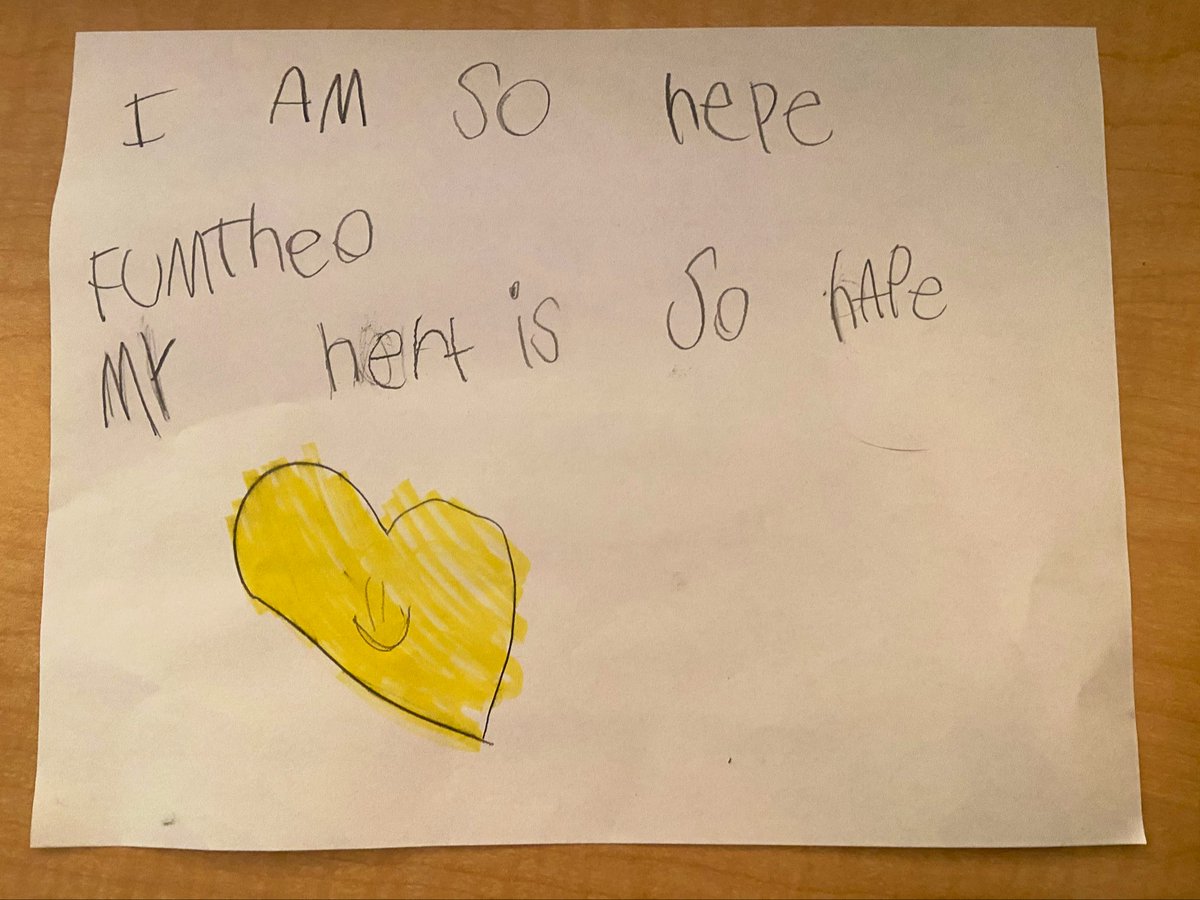 I AM SO hepe
FUMTheO
MY heht is SO hAPe